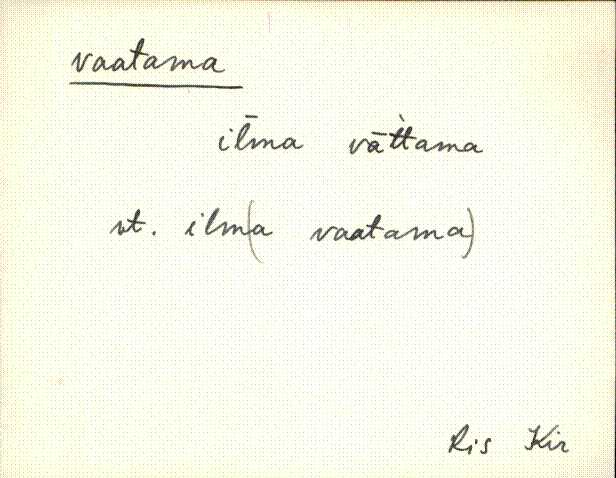 vaatama
il̄ma vāt̀tama
vt. ilm(a vaatama)
Ris Kir